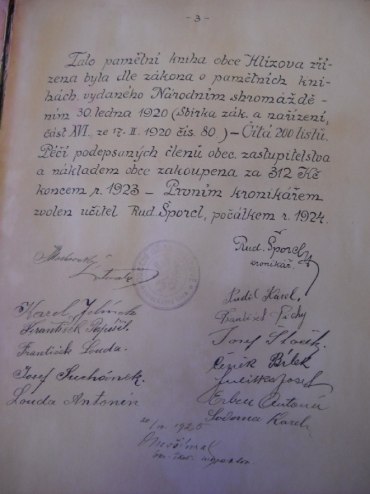 - 3 -
Tato pamětní kniha obce Hlízova zří-
zena byla dle zákona o pamětních kni-
hách vydaného Národním shromáždě-
ním 30. ledna 1920 (Sbírka zák. a nařízení,
část XVI. ze 17. II. 1920 čís. 80) – Čítá 200 listů.
Péčí podepsaných členů obec. zastupitelstva
a nákladem obce zakoupena za 312 Kč
koncem r. 1923 – Prvním kronikářem
zvolen učitel Rud. Šporcl, počátkem r. 1924.
Rud. Šporcl
kronikář
Karel Jelínek
František Pospíšil
František Louda.
Josef Suchánek.
Louda Antonín
Karel
František
Josef
Bílek
Josef
Antonín
Karel
1925